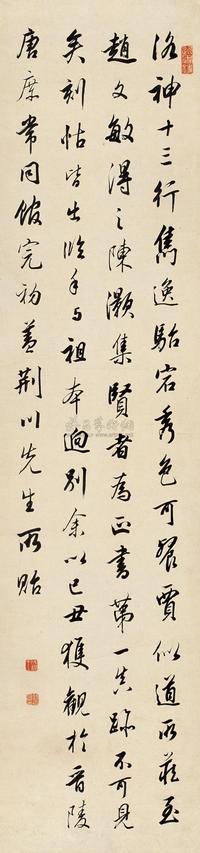 洛神十三行隽逸駘宕秀色可餐賈似道所藏至
趙文敏得之陳灝集賢者為正書第一真跡不可見
矣刻帖皆出臨手与祖本迥别余以己丑獲觀於晉陵
唐庶常同館完初蓋荊川先生所貽